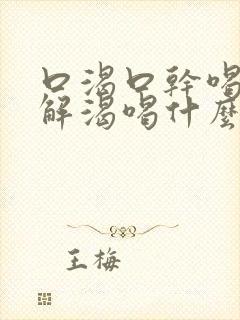 口渴口幹喝
解渴喝什麼
王梅